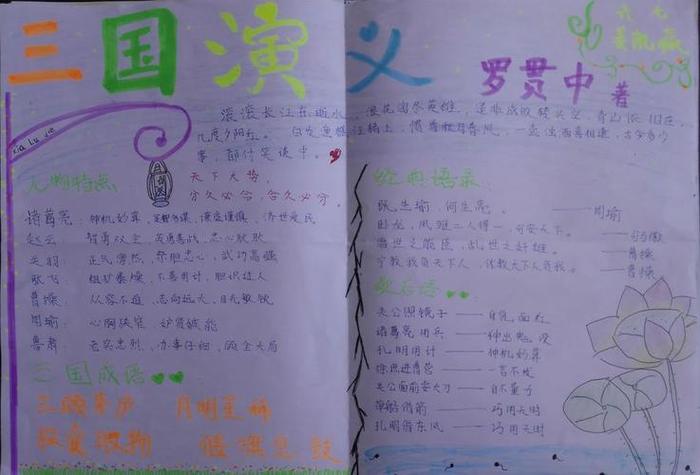 三国演义
罗贯中 著
六七
Xia Lu Jie
滚滚长江东逝水,浪花淘尽英雄,是非成败转头空,青山依旧在,
几度夕阳红。白发渔樵江渚上,惯看秋月春风,一壶浊酒喜相逢,古今多少
事,都付笑谈中。
天下大势,
分久必合,合久必分。
人物特点
诸葛亮:神机妙算、足智多谋、谨虚谨慎、济世爱民
赵云:智勇双全、英勇善战、忠心耿耿
关羽:正气凛然、赤胆忠心、武功高强
张飞:粗犷暴燥、不善用计、胆识过人
曹操:从容不迫、志向远大、目无敬锐
周瑜:心胸狭窄、妒贤嫉能
鲁肃:老实忠烈、办事仔细、顾全大局
三国成语
三顾茅庐 月明星稀
偃旗息鼓
经典语录:
既生瑜,何生亮。——周瑜
卧龙,凤雏二人得一,可安天下。——司马徽
当世之能臣,乱世之奸雄。——曹操
宁教我负天下人,休教天下人负我。——曹操
歇后语
关公照镜子——自觉面红
诸葛亮用兵——神出鬼没
孔明用计——神机妙算
徐庶进曹营——一言不发
关公面前耍大刀——自不量力
草船借箭——巧用天时
孔明借东风——巧用天时